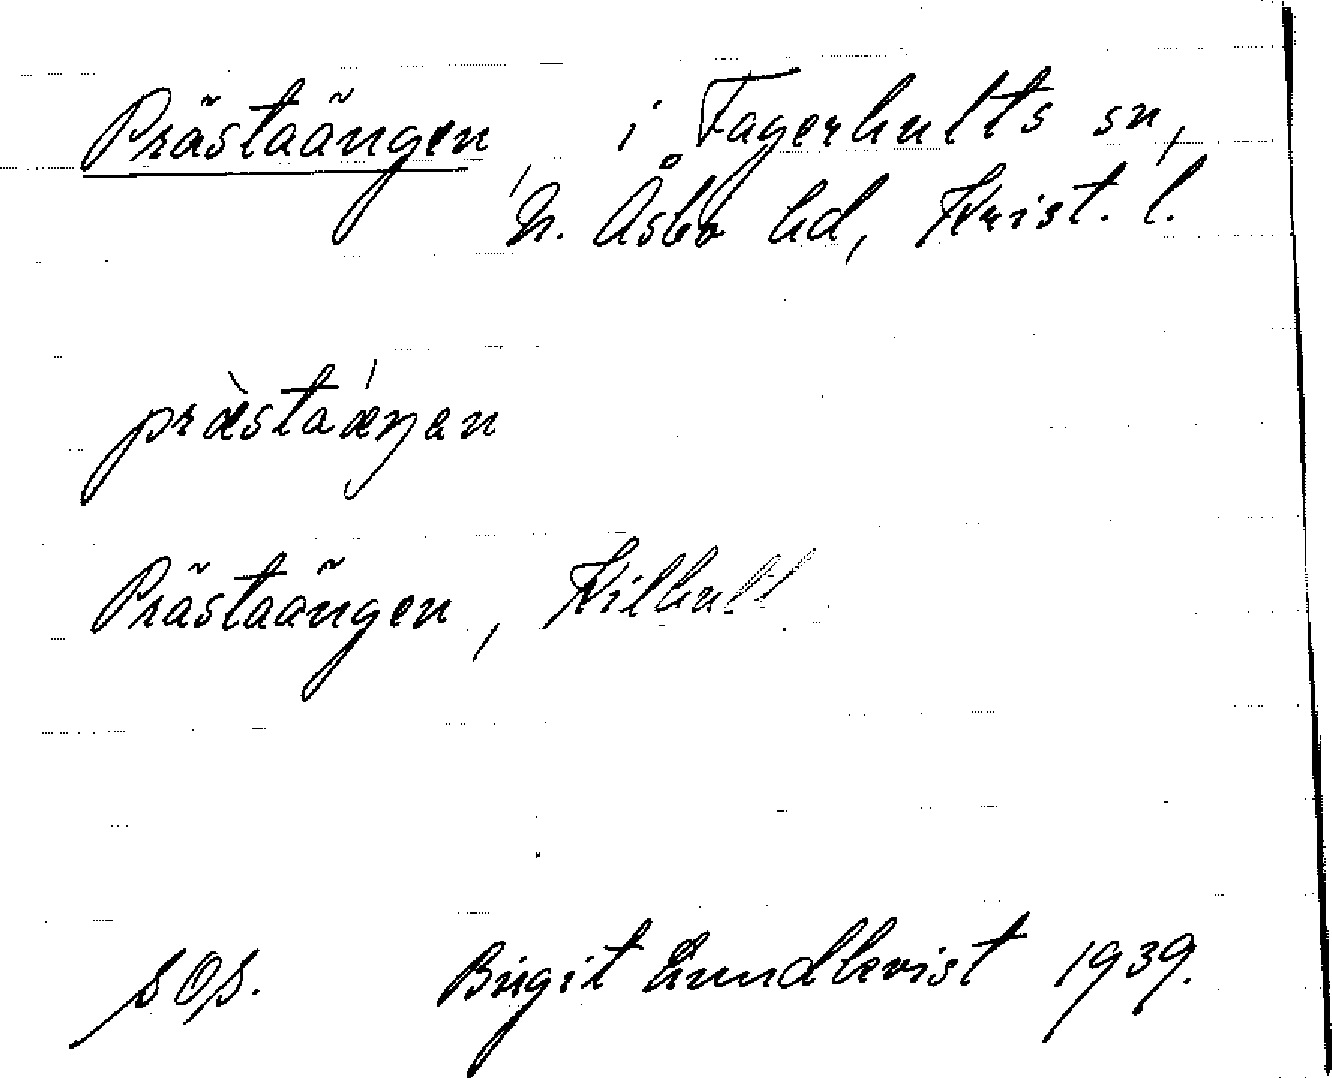 Prästaängen, i Fagerhults sn,
N. Åsbo hd, Krist. l.
præ̀staǽŋen
Prästaängen, Kilhult
SOS. Birgit Lundkvist 1939.